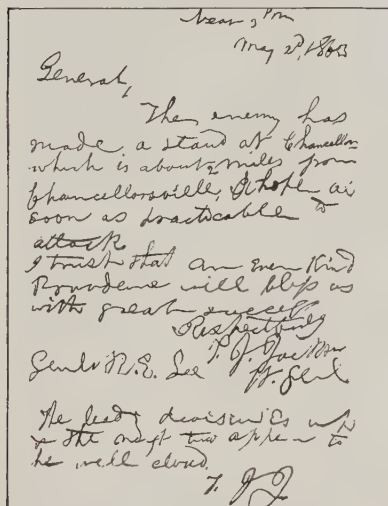 Near 3 Pm
May 2d, 1863
General,
The enemy has
made a stand at Chancellor's
which is about 2 miles from
Chancellorsville. I hope as
soon as practicable to
attack
I trust that an Ever Kind
Providence will bless us
with great success
Respectfully
T. J. Jackson
Genl. R. E. Lee Lt. Genl
The leading division is up
& the next two appear to
be well closed.
T. J. J.